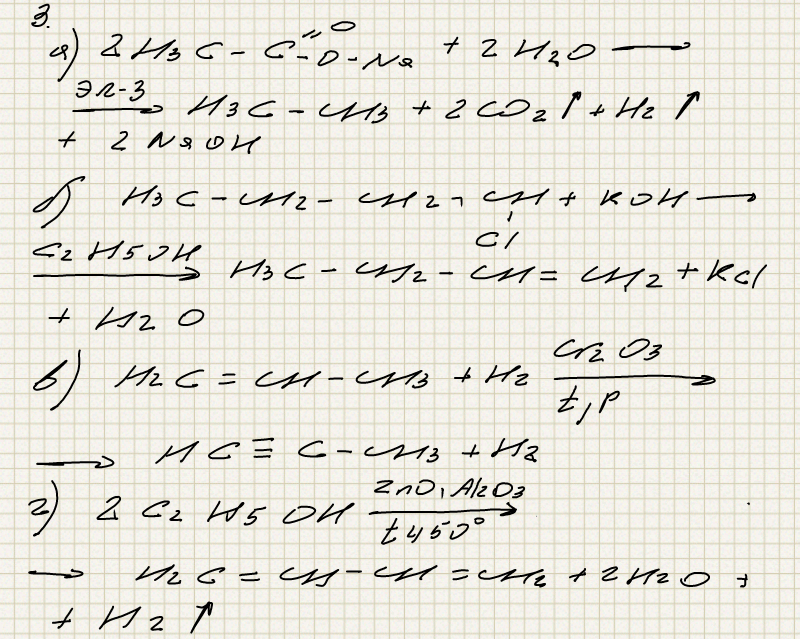 3.
а) 2 H3C - C =O -O-Na + 2 H2O ⟶
эл-з ⟶ H3C - CH3 + 2 CO2 ↑ + H2 ↑
+ 2 NaOH
б) H3C - CH2 - CH2 - CH + KOH ⟶
Cl
C2H5OH ⟶ H3C - CH2 - CH = CH2 + KCl
+ H2O
в) H2C = CH - CH3 + H2 Cr2O3 ⟶ t, p
⟶ HC ≡ C - CH3 + H2
г) 2 C2H5OH ZnO, Al2O3 ⟶ t 450°
⟶ H2C = CH - CH = CH2 + 2H2O +
+ H2 ↑